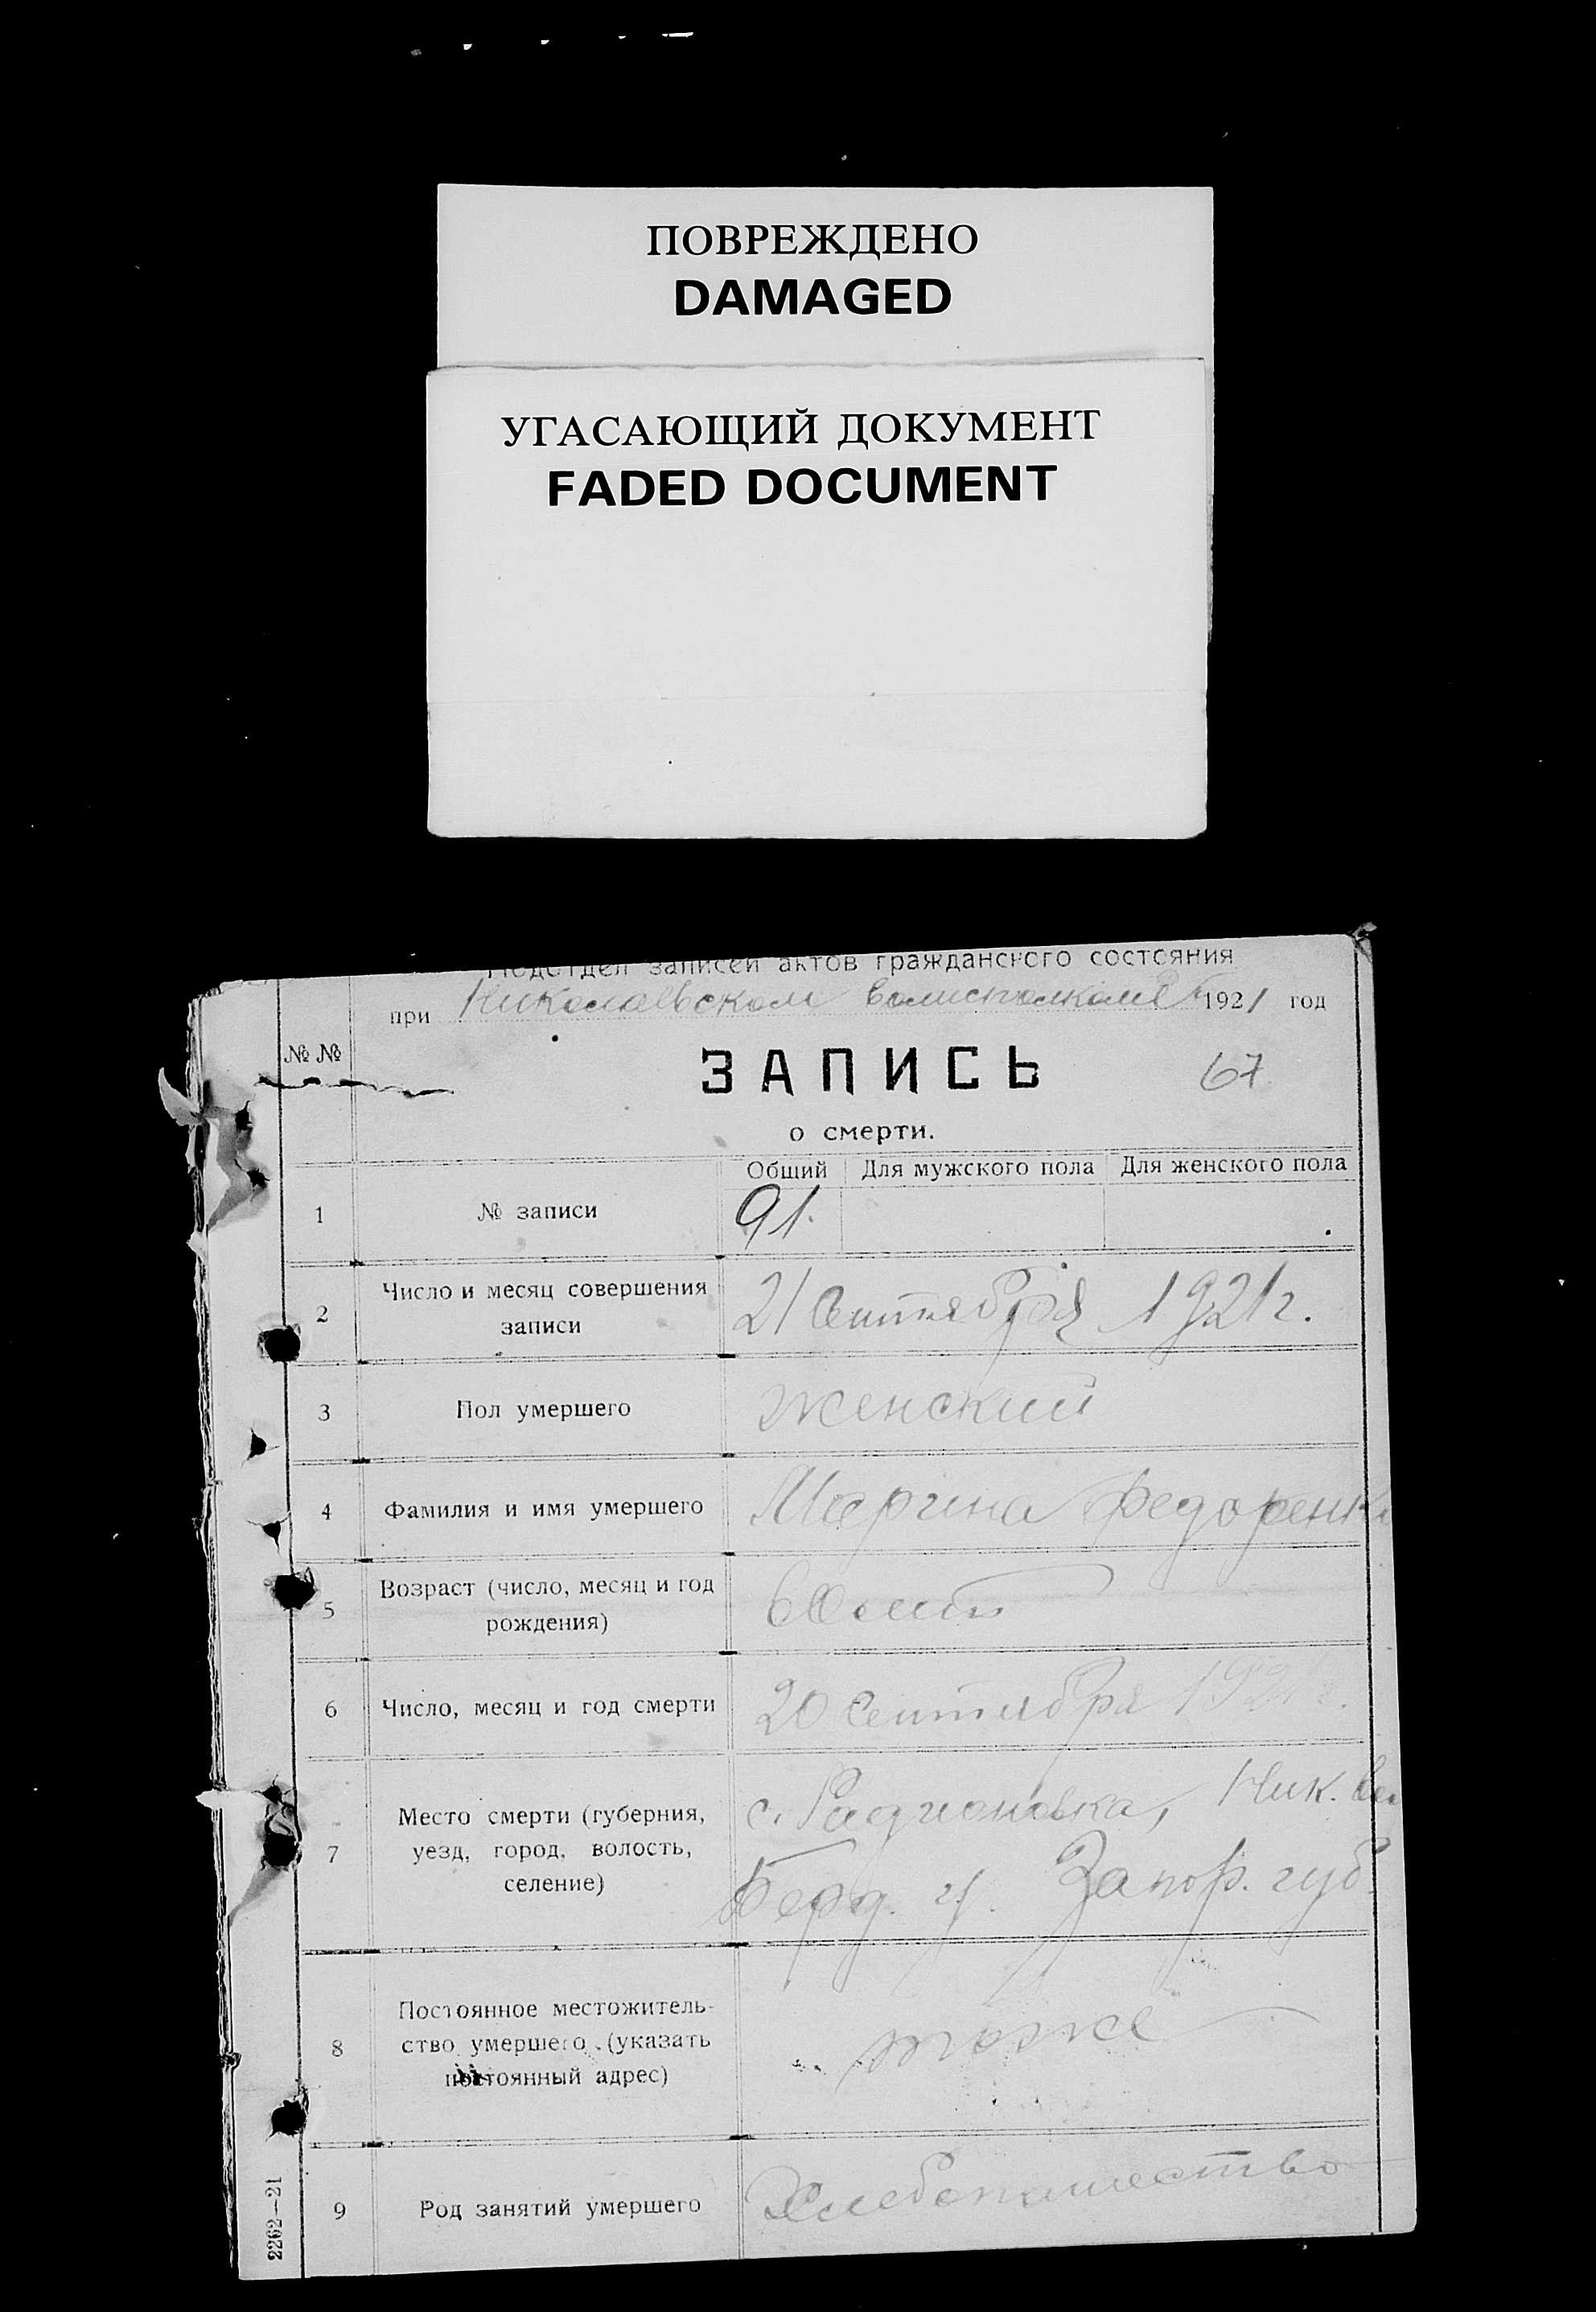 ПОВРЕЖДЕНО
DAMAGED
УГАСАЮЩИЙ ДОКУМЕНТ
FADED DOCUMENT
Подотдел записей актов гражданского состояния
при Николаевском волисполкоме 1921 год
№ №
ЗАПИСЬ
67
о смерти.
Общий Для мужского пола Для женского пола
1 № записи 91.
2 Число и месяц совершения
записи
21 Сентября 1921 г.
3 Пол умершего женский
4 Фамилия и имя умершего Марина Федоренко
5 Возраст (число, месяц и год
рождения)
60 лет
6 Число, месяц и год смерти 20 Сентября 1921 г.
7 Место смерти (губерния,
уезд, город, волость,
селение)
с. Радионовка, Ник. вол
Берд. у. Запор. губ.
8 Постоянное местожитель-
ство умершего (указать
постоянный адрес)
тоже
9 Род занятий умершего Хлебопашество
2262—21